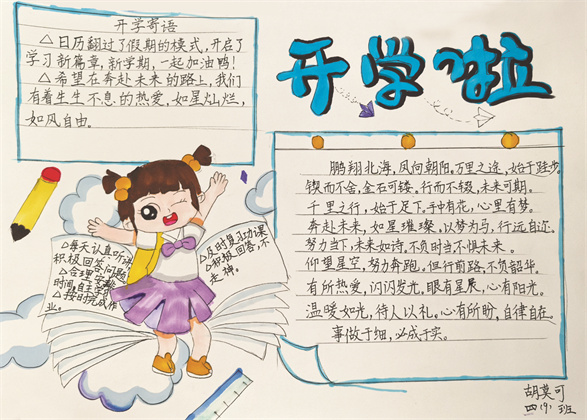 开学寄语
△日历翻过了假期的模式,开启了
学习新篇章,新学期,一起加油鸭!
△希望在奔赴未来的路上,我们
有着生生不息的热爱,如星灿烂,
如风自由。
开学啦
鹏翔北海,风向朝阳。万里之途,始于跬步。
锲而不舍,金石可镂。行而不辍,未来可期。
千里之行,始于足下。手中有花,心里有梦。
奔赴未来,如星璀璨,以梦为马,行远自迩。
努力当下,未来如诗,不负时当不惧未来。
仰望星空,努力奔跑。但行前路,不负韶华。
有所热爱,闪闪发光,眼有星辰,心有阳光。
温暖如光,待人以礼。心有所盼,自律自在。
事做于细,必成于实。
△每天认真听讲
积极回答问题
△合理安排
时间,自主学
△按时完成作
业。
△及时复习功课
△积极回答,不
走神。
胡莫可
四(9)班